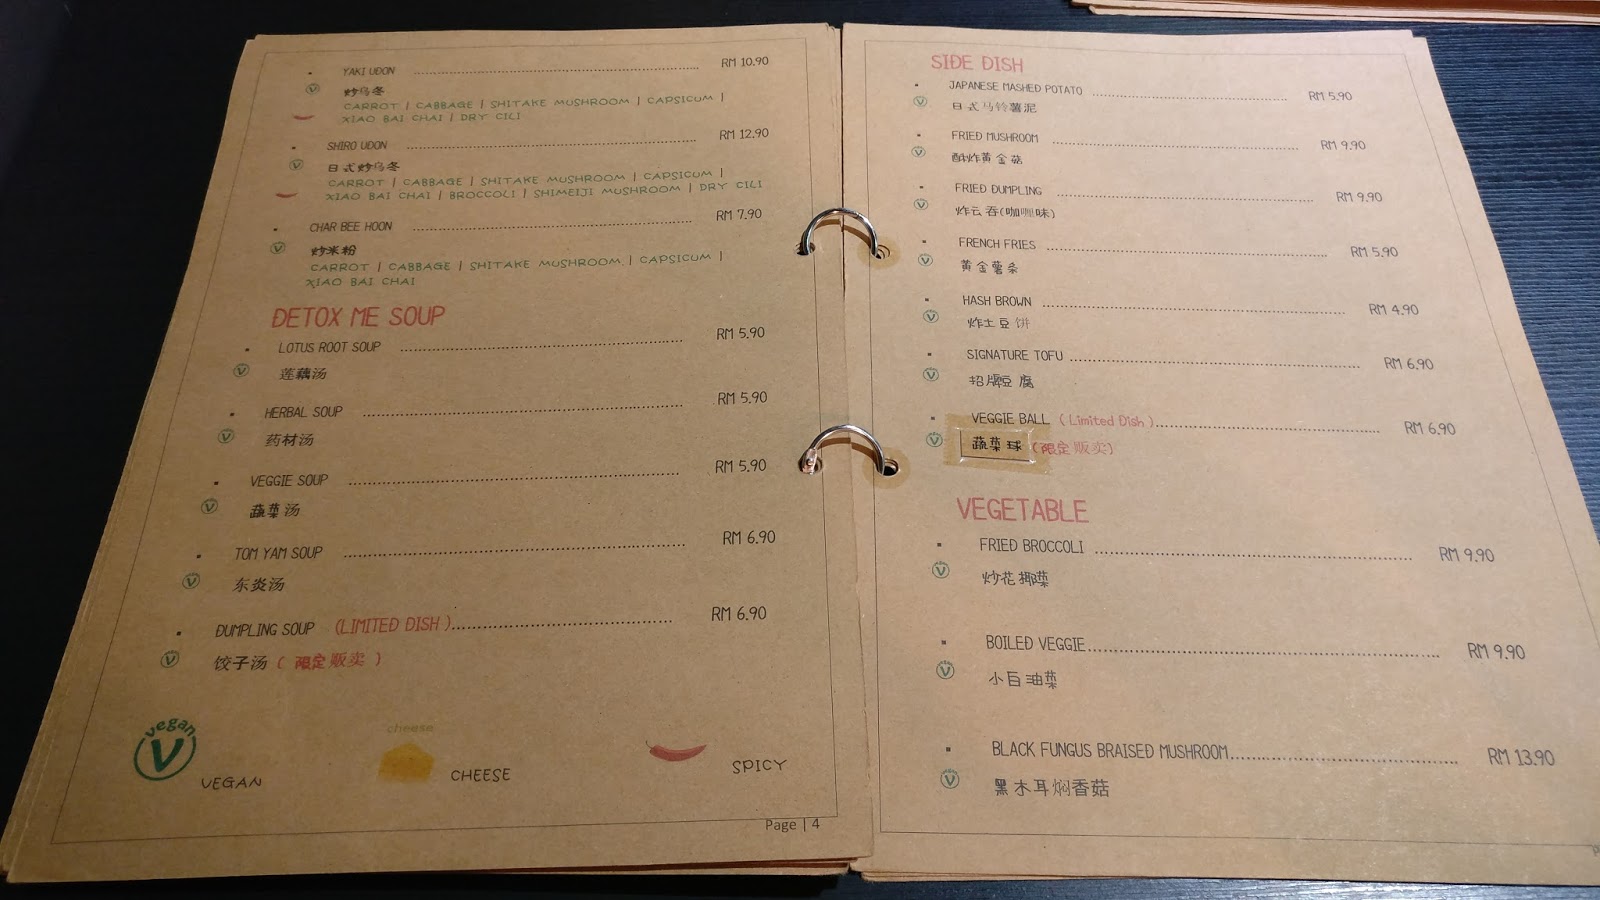 YAKI UDON ........ RM 10.90
炒乌冬
CARROT | CABBAGE | SHITAKE MUSHROOM | CAPSICUM |
XIAO BAI CHAI | DRY CILI
SHIRO UDON ........ RM 12.90
日式炒乌冬
CARROT | CABBAGE | SHITAKE MUSHROOM | CAPSICUM |
XIAO BAI CHAI | BROCCOLI | SHIMEIJI MUSHROOM | DRY CILI
CHAR BEE HOON ........ RM 7.90
炒米粉
CARROT | CABBAGE | SHITAKE MUSHROOM | CAPSICUM |
XIAO BAI CHAI
DETOX ME SOUP
LOTUS ROOT SOUP ........ RM 5.90
莲藕汤
HERBAL SOUP ........ RM 5.90
药材汤
VEGGIE SOUP ........ RM 5.90
蔬菜汤
TOM YAM SOUP ........ RM 6.90
东炎汤
DUMPLING SOUP (LIMITED DISH)........ RM 6.90
饺子汤 ( 限定贩卖 )
vegan
V VEGAN
cheese
CHEESE
SPICY
Page | 4
SIDE DISH
JAPANESE MASHED POTATO ........ RM 5.90
日式马铃薯泥
FRIED MUSHROOM ........ RM 9.90
酥炸黄金菇
FRIED DUMPLING ........ RM 9.90
炸云吞(咖喱味)
FRENCH FRIES ........ RM 5.90
黄金薯条
HASH BROWN ........ RM 4.90
炸土豆饼
SIGNATURE TOFU ........ RM 6.90
招牌豆腐
VEGGIE BALL ( Limited Dish )........ RM 6.90
蔬菜球 (限定贩卖)
VEGETABLE
FRIED BROCCOLI ........ RM 9.90
炒花椰菜
BOILED VEGGIE........ RM 9.90
小白油菜
BLACK FUNGUS BRAISED MUSHROOM........ RM 13.90
黑木耳焖香菇